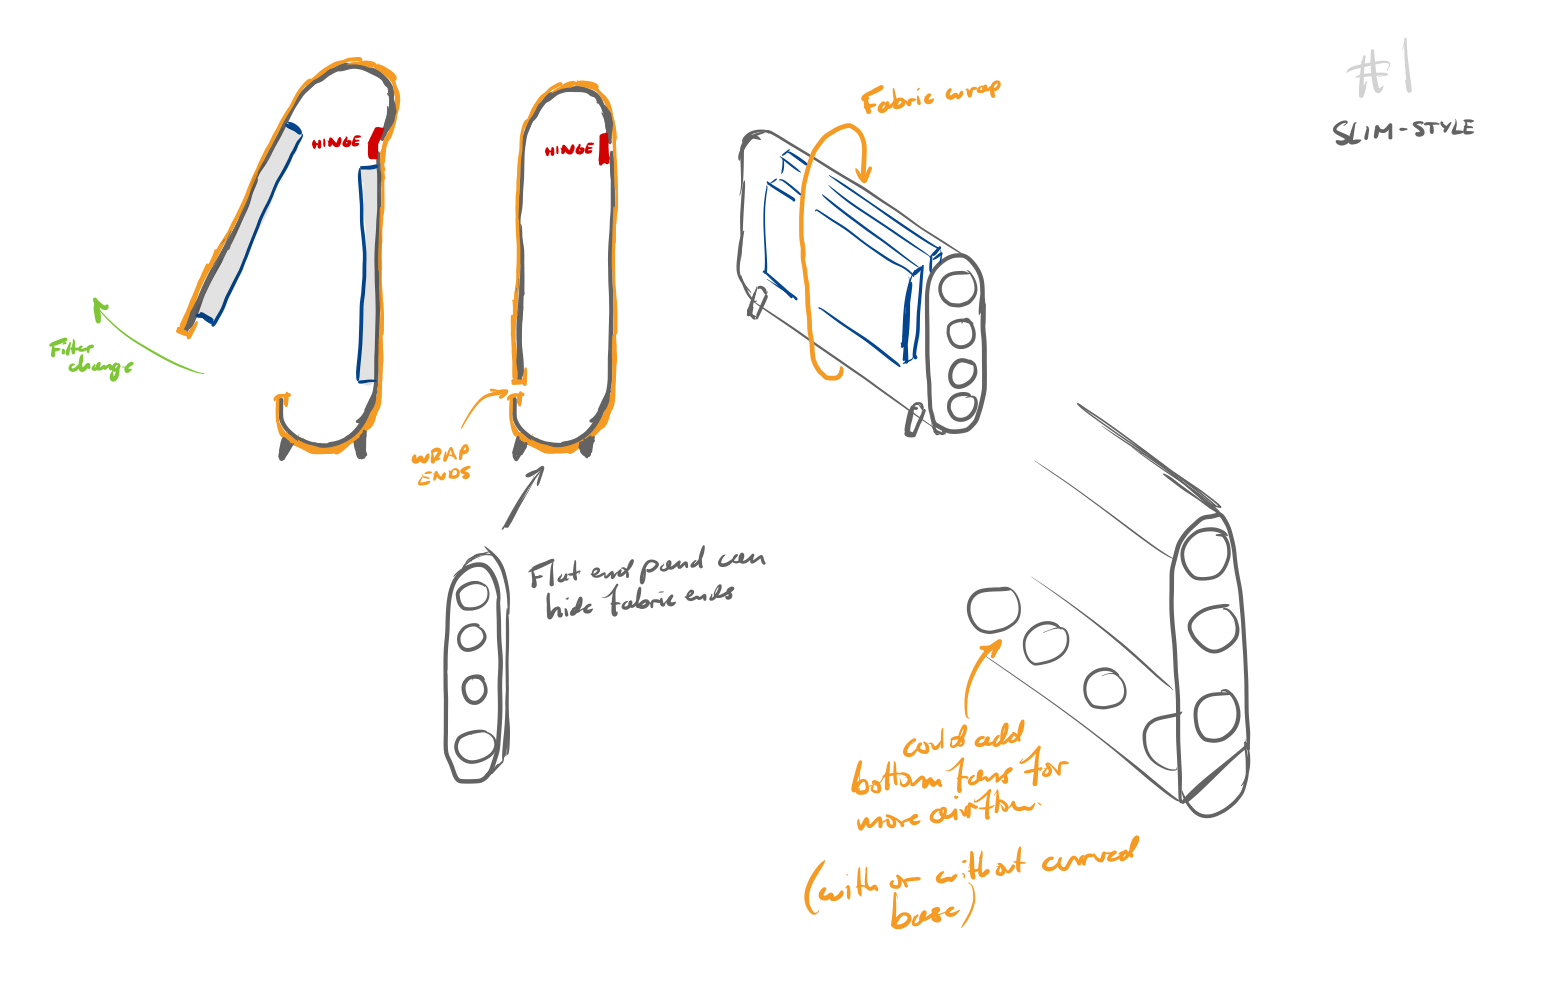 #1
SLIM-STYLE
Fabric wrap
HINGE
HINGE
Filter
change
WRAP
ENDS
Flat end panel can
hide fabric ends
could add
bottom fans for
more airflow.
(with or without curved
base)